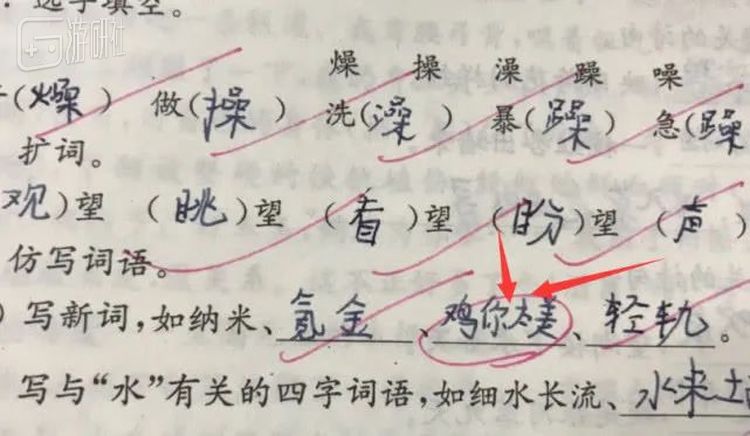 游研社
选字填空。
燥 操 澡 躁 噪
(燥) 做(操) 洗(澡) 暴(躁) 急(躁
扩词。
观)望 (眺)望 (看)望 (盼)望 (声)
仿写词语。
)写新词,如纳米、氪金、鸡你太美、轻轨。
写与“水”有关的四字词语,如细水长流、水来土